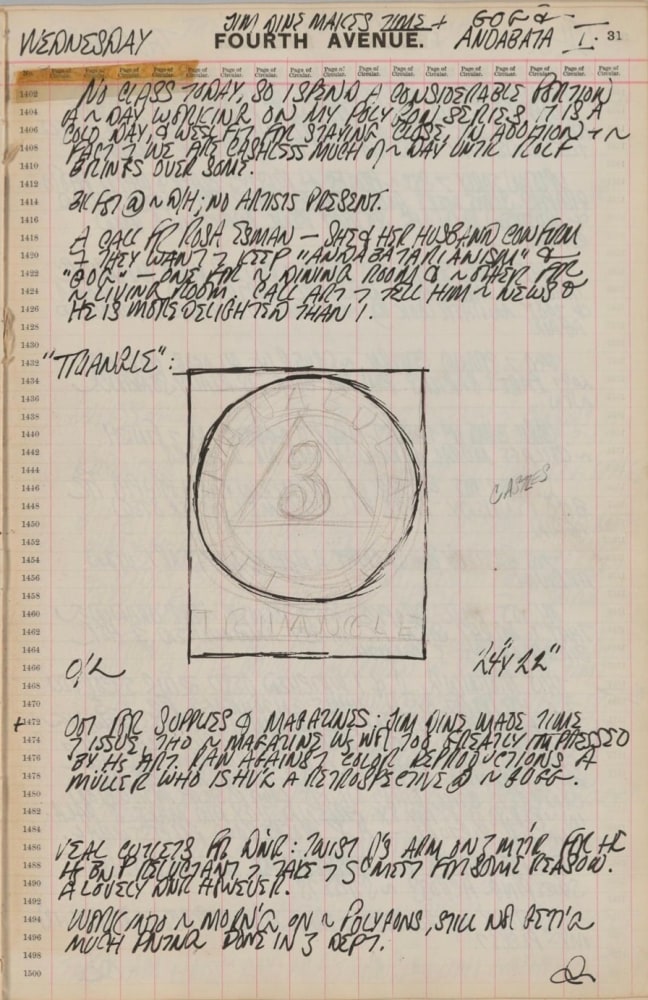 WEDNESDAY
JIM DINE MAKES TIME +
GOG &
ANDABATA I. 31
FOURTH AVENUE.
No. Page of Circular. Page of Circular. Page of Circular. Page of Circular. Page of Circular. Page of Circular. Page of Circular. Page of Circular. Page of Circular. Page of Circular. Page of Circular. Page of Circular. Page of Circular. Page of Circular. Page of Circular. Page of Circular.
1402 NO CLASS TODAY, SO I SPEND A CONSIDERABLE PORTION
1404 A ~ DAY WORKING ON MY POLYGON SERIES. IT IS A
1406 COLD DAY, & WELL FIT FOR STAYING CLOSE, IN ADDITION + ~
1408 FACT WE ARE CASHLESS MUCH OF ~ DAY UNTIL ROLF
1410 BRINGS OVER SOME.
1412
1414 BKFST @ ~ D/H; NO ARTISTS PRESENT.
1416
1418 A CALL FR ROSA ESMAN — SHE & HER HUSBAND CONFIRM
1420 THEY WANT KEEP "ANDABATARIANISM" &
1422 "GOG" — ONE FOR ~ DINING ROOM & ~ OTHER FOR
1424 ~ LIVING ROOM. CALL ART TELL HIM ~ NEWS &
1426 HE IS MORE DELIGHTED THAN I.
1428
1430
1432 "TRIANGLE":
1434
1436
1438
1440
1442
1444 3
1446 CASTLES
1448
1450
1452
1454
1456
1458
1460 TRIANGLE
1462
1464
1466 OIL 24" X 22"
1468
1470
1472 + OUT FOR SUPPLIES & MAGAZINES: JIM DINE MADE TIME
1474 ISSUE, THO ~ MAGAZINE WS NOT TOO GREATLY IMPRESSED
1476 BY HS ART. RAN AGAINST COLOR REPRODUCTIONS A
1478 MÜLLER WHO IS HVG A RETROSPECTIVE @ ~ GUGG.
1480
1482
1484
1486 VEAL CUTLETS FR DNR: TWIST D'S ARM ON FOR HE
1488 HS BN RELUCTANT TAKE FOR SOME REASON.
1490 A LOVELY DNR HOWEVER.
1492
1494 WORK INTO ~ MORN'G ON ~ POLYGONS, STILL NOT GETT'G
1496 MUCH PNTNG DONE IN DEPT.
1498
1500